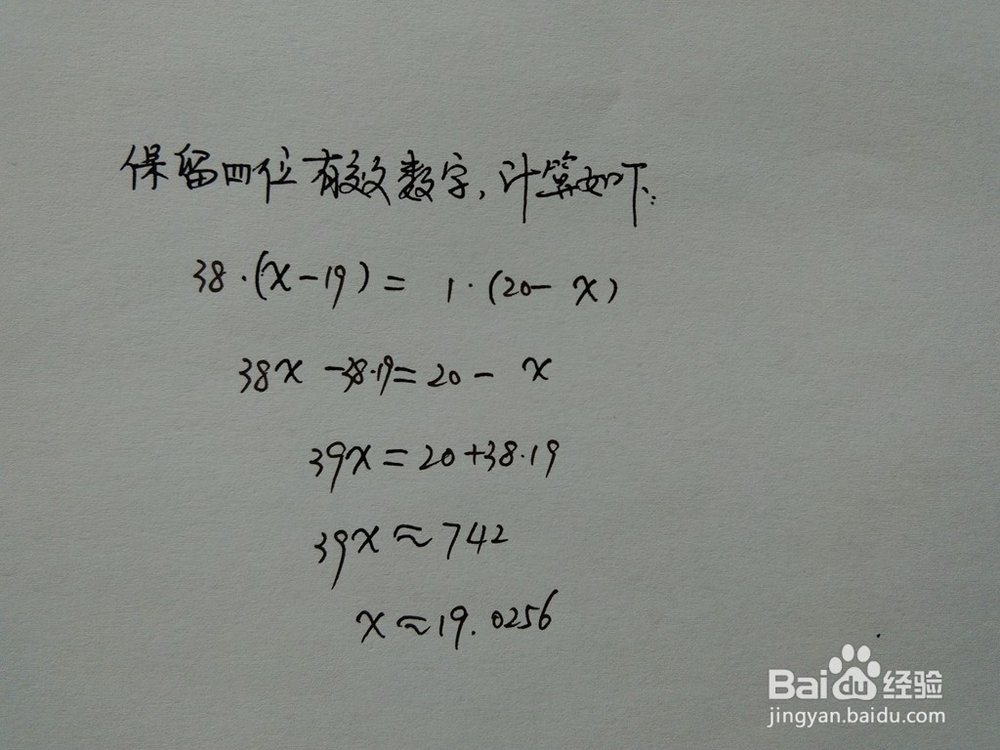 保留四位有效数字,计算如下:
38·(x-19)= 1·(20-x)
38x-38·19=20-x
39x=20+38·19
39x≈742
x≈19.0256
Baidu经验
jingyan.baidu.com